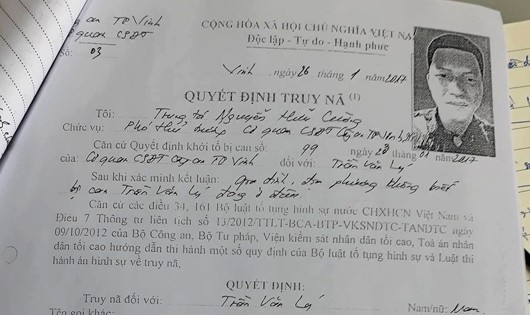 Công an TP Vinh
Cơ quan CSĐT
Số: 03
CỘNG HÒA XÃ HỘI CHỦ NGHĨA VIỆT NA
Độc lập - Tự do - Hạnh phúc
Vinh, ngày 26 tháng 1 năm 2017
QUYẾT ĐỊNH TRUY NÃ (1)
Tôi: Trung tá Nguyễn Hữu Cường
Chức vụ: Phó thủ trưởng Cơ quan CSĐT Công an TP Vinh
Căn cứ Quyết định khởi tố bị can số: 99 ngày 28 tháng 01 2017
của: Cơ quan CSĐT Công an TP Vinh đối với: Trần Văn Lý
Sau khi xác minh kết luận: Gia đình, địa phương không biết
bị can Trần Văn Lý đang ở đâu.
Căn cứ các điều 34, 161 Bộ luật tố tụng hình sự nước CHXHCN Việt Nam và
Điều 7 Thông tư liên tịch số 13/2012/TTLT-BCA-BTP-VKSNDTC-TANDTC ngày
09/10/2012 của Bộ Công an, Bộ Tư pháp, Viện kiểm sát nhân dân tối cao, Toà án nhân
dân tối cao hướng dẫn thi hành một số quy định của Bộ luật tố tụng hình sự và Luật thi
hành án hình sự về truy nã,
QUYẾT ĐỊNH:
Truy nã đối với: Trần Văn Lý Nam/nữ: Nam
Tên gọi khác: